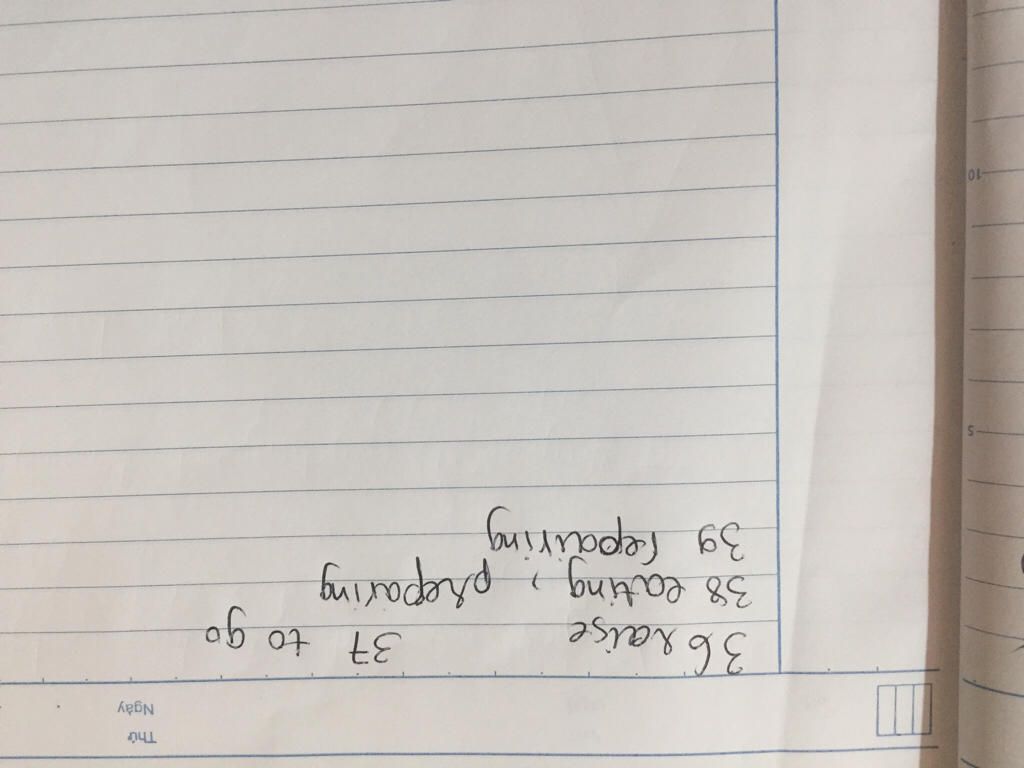 Thứ
Ngày
36 raise 37 to go
38 eating, preparing
39 repairing
5
10